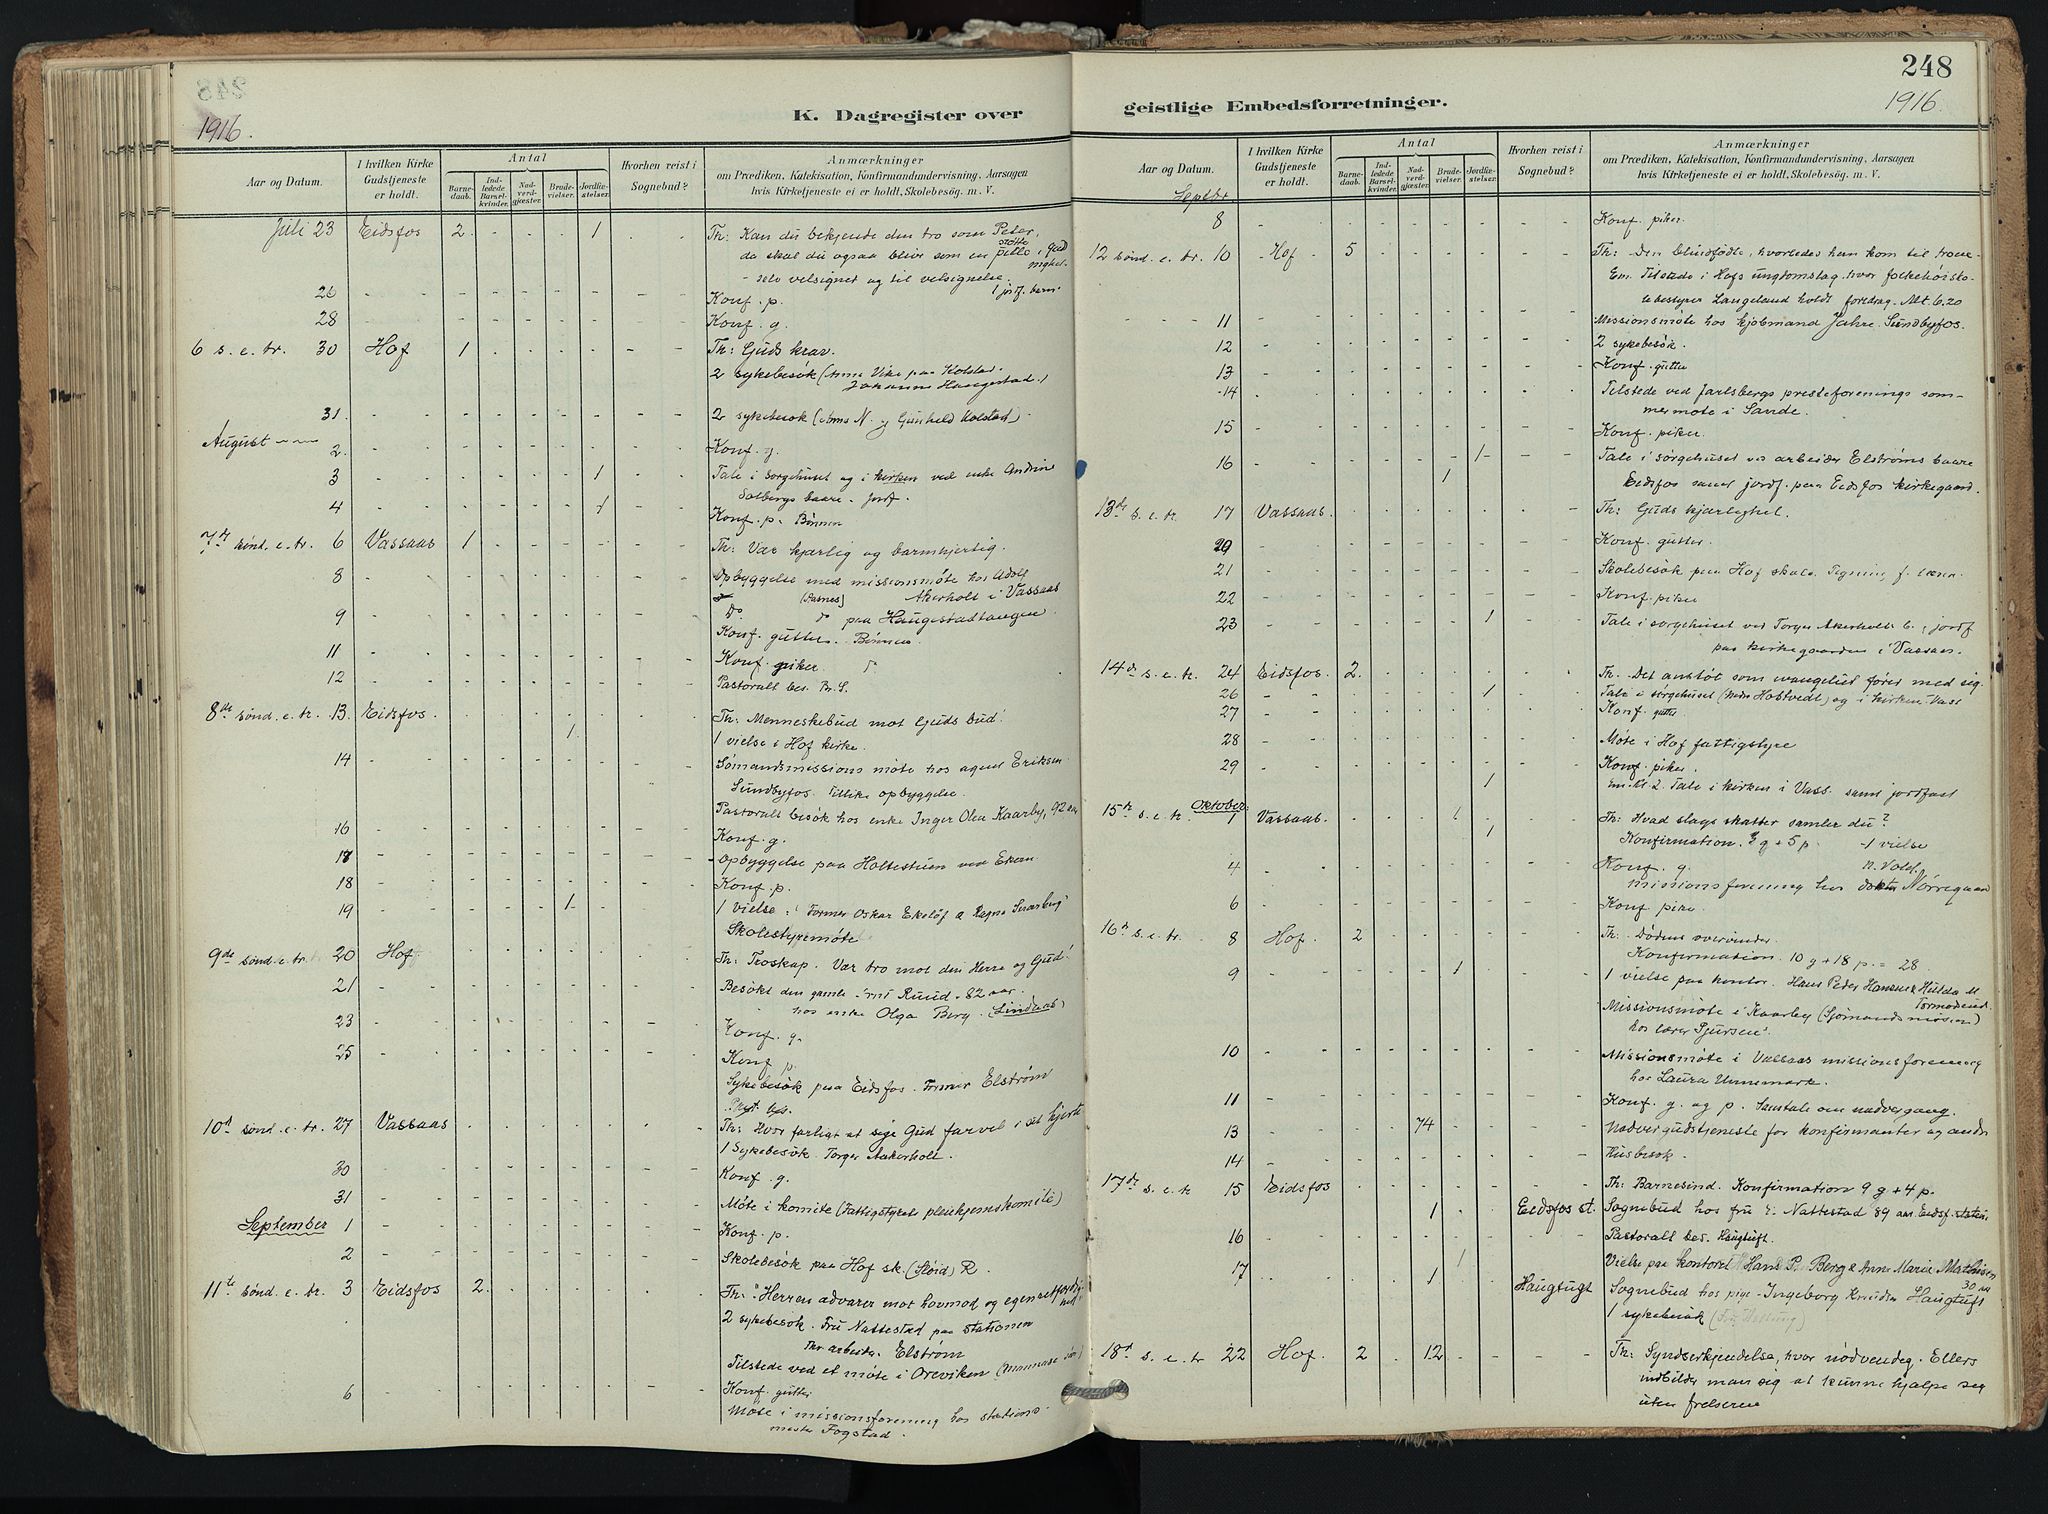 248
K. Dagregister over geistlige Embedsforretninger.
1916.
1916.
Aar og Datum.
I hvilken Kirke Gudstjeneste er holdt.
Antal
Barnedaab.
Indledede Barselkvinder.
Nadverdgjæster.
Brudevielser.
Jordfæstelser.
Hvorhen reist i Sognebud?
Anmærkninger
om Prædiken, Katekisation, Konfirmandundervisning, Aarsagen
hvis Kirketjeneste ei er holdt, Skolebesøg. m. V.
Juli 23 Eidsfos 2 1 Th: Kan du bekjende den tro som Peter,
da skal du ogsaa blive som en støtte pille, Gud
- selv velsignet og til velsignelse. 1 jordf. barn.
26 Konf. p.
28 Konf. g.
6 s. e. tr. 30 Hof 1 Th: Guds krav.
2 sykebesøk (Anne Vike paa Kolstad.
Johanne Haugestad.)
31. 2 sykebesøk (Anne N. og Gunhild Kolstad)
August 2. Konf. g.
3 1 Tale i sørgehuset og i kirken ved enke Andrine
Solbergs baare - jordf.
4 1 Konf. p. Bønnen
7de sønd. e. tr. 6 Vassaas 1 Th: Vær kjærlig og barmhjertig.
8 Opbyggelse med missionsmøte hos Adolf
Akerholt i Vassaas
9 Do do paa Haugestadtangen
Konf. gutter. Bønnen
11 Konf. piker do
12 Pastoralt bes. Br. S.
8de sønd. e. tr. 13. Eidsfos. Th: Menneskebud mot Guds bud.
1 1 vielse i Hof kirke.
14 Sømandsmissions møte hos agent Eriksen
Sundbyfos. Tillike opbyggelse.
Pastoralt besøk hos enke Inger Olea Kaarby, 92 aar
16 Konf. g.
17 Opbyggelse paa Holtestuen ved Ekern
18 Konf. p.
19 1 1 vielse: Former Oskar Ekeløf & Ragna
Skolestyremøte
9de sønd. e. tr. 20 Hof Th: Troskap. Vær tro mot den Herre og Gud.
21 Besøkt den gamle Ruud. 82 aar.
hos enke Olga Berg. (Lindnes)
23 Konf. g.
25 Konf. p.
Sykebesøk paa Eidsfos. Former Elstrøm
Past. bes.
10d sønd. e. tr. 27 Vassaas Th: Hvor farligt at sige Gud farvel i sit hjerte
1 Sykebesøk. Torger Aakerholt.
30 Konf. g.
31 Møte i komite (Fattigstyrets pleiehjemskomite)
September 1 Konf. p.
2 Skolebesøk paa Hof sk. (Sløid) R.
11te sønd. e. tr. 3 Eidsfos 2. Th: "Herren advarer mot hovmod og egenretfærdighet"
2 sykebesøk. Fru Nattestad paa stationen
Thv arbeider. Elstrøm
Tilstede ved et møte i Oreviken
6 Konf. gutter
Møte i missionsforening hos stations-
mester Fogstad.
248
Aar og Datum.
I hvilken Kirke Gudstjeneste er holdt.
Antal
Barnedaab.
Indledede Barselkvinder.
Nadverdgjæster.
Brudevielser.
Jordfæstelser.
Hvorhen reist i Sognebud?
Anmærkninger
om Prædiken, Katekisation, Konfirmandundervisning, Aarsagen
hvis Kirketjeneste ei er holdt, Skolebesøg. m. V.
Septbr.
8 Konf. piker.
12 sønd. e. tr. 10 Hof 5 Th: Den blindfødte, hvorledes han kom til troen
Em. Tilstede i Hofs ungdomslag, hvor folkehøisko-
lebestyrer Langeland holdt foredrag. Mt. 6.20
11 Missionsmøte hos kjøbmand Jahre. Sundbyfos.
12 2 sykebesøk.
13 Konf. gutter
14 Tilstede ved Jarlsbergs presteforenings som-
mermøte i Sande.
15 Konf. piker.
16 1 Tale i sørgehuset ved arbeider Elstrøms baare
1 Eidsfos samt jordf. paa Eidsfos kirkegaard.
13de s. e. tr. 17 Vassaas. Th: Guds kjærlighet.
20 Konf. gutter.
21 Skolebesøk paa Hof skole. Tegning f. lærer.
22 Konf. piker
23 1 Tale i sørgehuset ved Torger Akerholts b., jordf
paa kirkegaarden i Vassaas.
14de s. e. tr. 24 Eidsfos. 2. Th. Det anstøt som evangeliet fører med sig.
26 1 Tale i sørgehuset (Nedre Hostvedt) og i kirken Vass
27 Konf. gutter
28 Møte i Hof fattigstyre
29 Konf. piker.
1 em. kl 2. Tale i kirken i Vass. samt jordfæst
15de s. e. tr. Oktober: 1 Vassaas. 1 Th: Hvad slags skatter samler du?
1 Konfirmation. g + 5 p. - 1 vielse
4 Konf. g. N. Vold.
missionsforening hos doktor Nørregaard
6 Konf. piker.
16de s. e. tr. 8 Hof. 2 Th: Dødens overvinder.
Konfirmation. 10 g + 18 p. = 28.
9 1 1 vielse paa kontor. Hans Peder Hansen & Hulda M
Tormodsrud.
Missionsmøte i Kaarby (Sjømandsmission)
hos lærer Sjursen.
10 Missionsmøte i Vassaas missionsforening
hos Laura Unnemark.
11 Konf. g. og p. Samtale om nadvergang.
13 74 Nadvergudstjeneste for konfirmanter og andre
14 Husbesøk.
17de s. e. tr 15 Eidsfos Th: Barnesind. Konfirmation 9 g + 4 p.
1 Eidsfos st. Sognebud hos fru E. Nattestad 89 aar. Eidsf. station
16 Pastoralt bes. Haugtuft.
1 Vielse paa kontoret Hans P. Berg & Anne Marie Mathisen
17 1 Haugtugt Sognebud hos pige Ingeborg Knudsen Haugtuft 30 aar
1 sykebesøk
18d s. e. tr 22 Hof. 2 12 Th: Syndserkjendelse, hvor nødvendig. Ellers
indbilder man sig at kunne hjælpe seg
uten frelseren